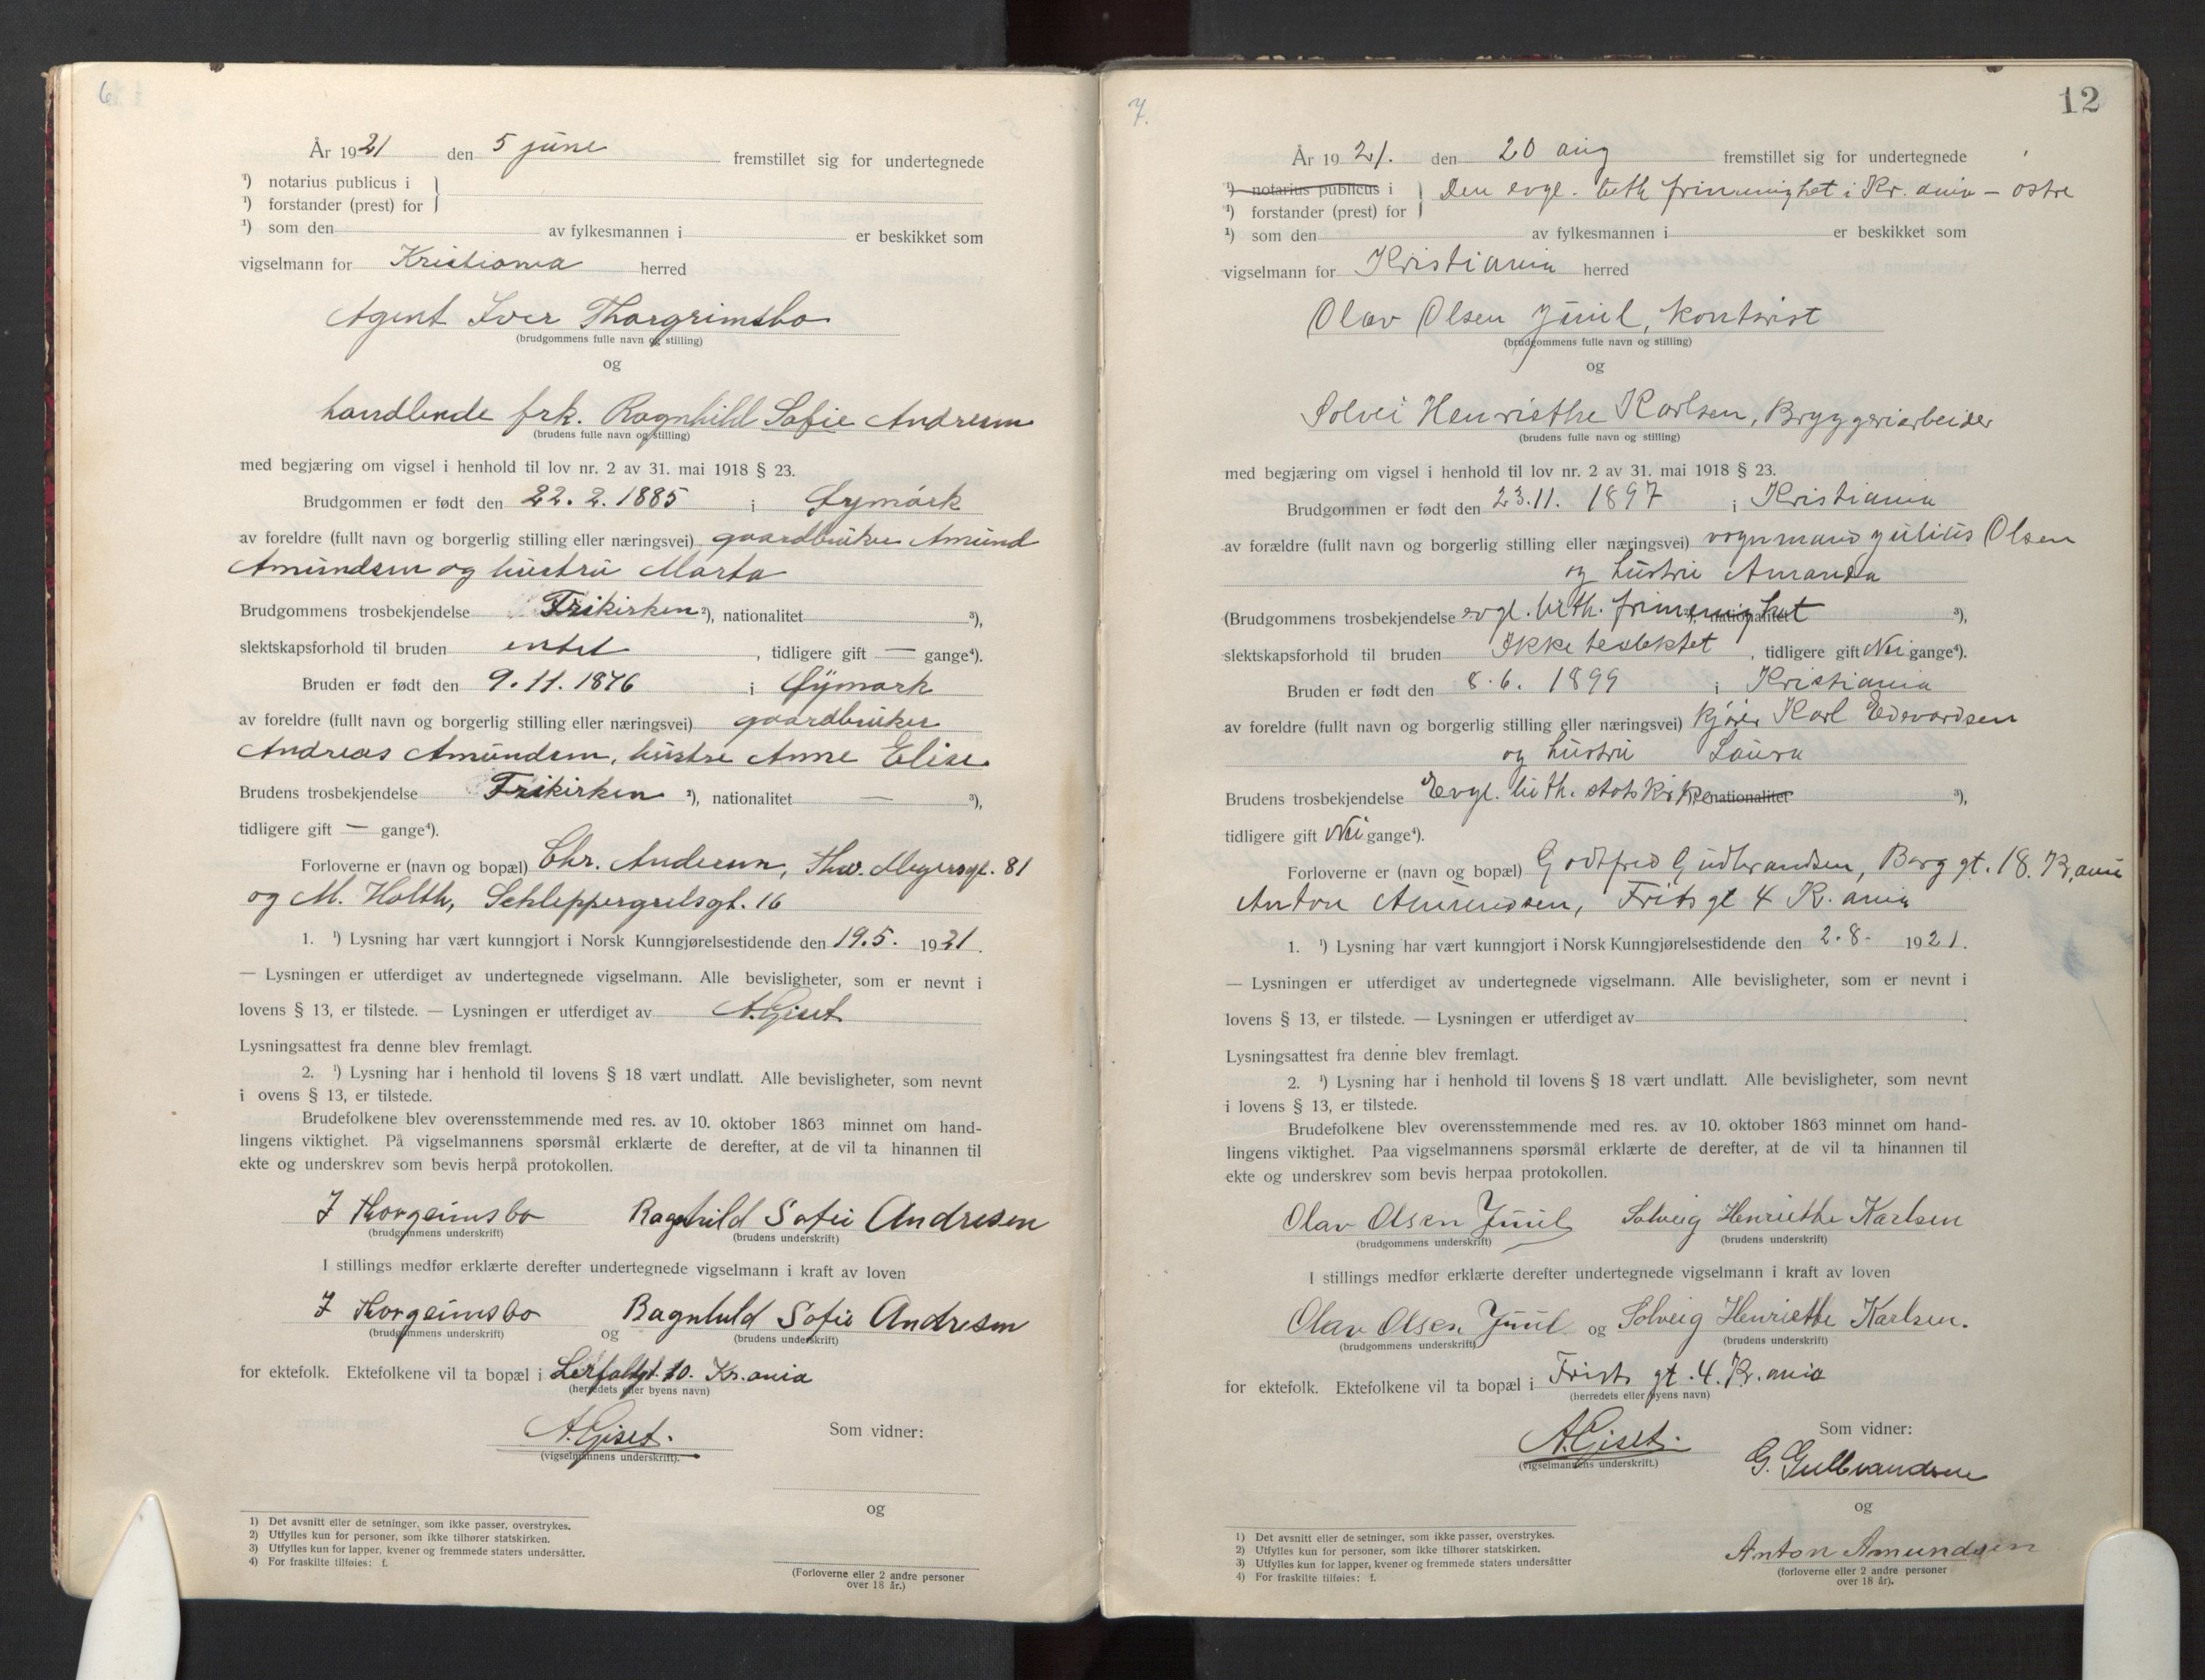 6
År 1921 den 5 june fremstillet sig for undertegnede
¹) notarius publicus i
¹) forstander (prest) for
¹) som den av fylkesmannen i er beskikket som
vigselmann for Kristiania herred
Agent Iver Thorgrimsbo
(brudgommens fulle navn og stilling)
og
handlende frk. Ragnhild Sofie Andresen
(brudens fulle navn og stilling)
med begjæring om vigsel i henhold til lov nr. 2 av 31. mai 1918 § 23.
Brudgommen er født den 22. 2. 1885 i Øymark
av foreldre (fullt navn og borgerlig stilling eller næringsvei) gaardbruker Amund
Amundsen og hustru Marta
Brudgommens trosbekjendelse Frikirken ²), nationalitet ³),
slektskapsforhold til bruden intet, tidligere gift — gange⁴).
Bruden er født den 9. 11. 1876 i Øymark
av foreldre (fullt navn og borgerlig stilling eller næringsvei) gaardbruker
Andreas Amundsen, hustru Anne Elise
Brudens trosbekjendelse Frikirken ²), nationalitet — ³),
tidligere gift — gange⁴).
Forloverne er (navn og bopæl) Chr. Andersen, Thv. Meyersgt. 81
og M. Holth, Schleppegrelsgt. 16
1. ¹) Lysning har vært kunngjort i Norsk Kunngjørelsestidende den 19. 5. 1921.
— Lysningen er utferdiget av undertegnede vigselmann. Alle bevisligheter, som er nevnt i
lovens § 13, er tilstede. — Lysningen er utferdiget av A. Giset
Lysningsattest fra denne blev fremlagt.
2. ¹) Lysning har i henhold til lovens § 18 vært undlatt. Alle bevisligheter, som nevnt
i ovens § 13, er tilstede.
Brudefolkene blev overensstemmende med res. av 10. oktober 1863 minnet om hand-
lingens viktighet. På vigselmannens spørsmål erklærte de derefter, at de vil ta hinannen til
ekte og underskrev som bevis herpå protokollen.
I Thorgrimsbo Ragnhild Sofie Andresen
(brudgommens underskrift) (brudens underskrift)
I stillings medfør erklærte derefter undertegnede vigselmann i kraft av loven
I Thorgrimsbo og Ragnhild Sofie Andresen
(brudgommens underskrift) (brudens underskrift)
for ektefolk. Ektefolkene vil ta bopæl i Lerfaldgt. 10. Kr.ania
(herredets eller byens navn)
A. Giset.
(vigselmannens underskrift).
Som vidner:
og
(Forloverne eller 2 andre personer
over 18 år.)
1) Det avsnitt eller de setninger, som ikke passer, overstrykes.
2) Utfylles kun for personer, som ikke tilhører statskirken.
3) Utfylles kun for lapper, kvener og fremmede staters undersåtter.
4) For fraskilte tilføies: f.
7.
12
År 1921. den 20 aug fremstillet sig for undertegnede
¹) notarius publicus i
¹) forstander (prest) for
Den evgl. luth frimenighet i Kr. ania – østre
¹) som den av fylkesmannen i er beskikket som
vigselmann for Kristiania herred
Olav Olsen Juul, kontorist
(brudgommens fulle navn og stilling)
og
Solvei Henriethe Karlsen, Bryggeriarbeider
(brudens fulle navn og stilling)
med begjæring om vigsel i henhold til lov nr. 2 av 31. mai 1918 § 23.
Brudgommen er født den 23. 11. 1897 i Kristiania
av forældre (fullt navn og borgerlig stilling eller næringsvei) vognmand Julius Olsen
og hustru Amanda
(Brudgommens trosbekjendelse evgl. luth. frimenighet ²), nationalitet ³),
slektskapsforhold til bruden Ikke beslektet, tidligere gift Nei gange⁴).
Bruden er født den 8. 6. 1899 i Kristiania
av foreldre (fullt navn og borgerlig stilling eller næringsvei) kjører Karl Edvardsen
og hustru Laura
Brudens trosbekjendelse Evgl. luth. statskirke nationalitet ³),
tidligere gift Nei gange⁴).
Forloverne er (navn og bopæl) Godtfred Gudbrandsen, Borg gt. 18. Kr,ania
Anton Amundsen, Frits gt 4 Kr. ania
1. ¹) Lysning har vært kunngjort i Norsk Kunngjørelsestidende den 2. 8. 1921.
— Lysningen er utferdiget av undertegnede vigselmann. Alle bevisligheter, som er nevnt i
lovens § 13, er tilstede. — Lysningen er utferdiget av
Lysningsattest fra denne blev fremlagt.
2. ¹) Lysning har i henhold til lovens § 18 vært undlatt. Alle bevisligheter, som nevnt
i lovens § 13, er tilstede.
Brudefolkene blev overensstemmende med res. av 10. oktober 1863 minnet om hand-
lingens viktighet. Paa vigselmannens spørsmål erklærte de derefter, at de vil ta hinannen til
ekte og underskrev som bevis herpaa protokollen.
Olav Olsen Juul Solveig Henriethe Karlsen
(brudgommens underskrift) (brudens underskrift)
I stillings medfør erklærte derefter undertegnede vigselmann i kraft av loven
Olav Olsen Juul og Solveig Henriethe Karlsen.
(brudgommens underskrift) (brudens underskrift)
for ektefolk. Ektefolkene vil ta bopæl i Frists gt. 4. Kr. ania
(herredets eller byens navn)
A. Giset.
(vigselmannens underskrift.)
Som vidner:
G. Gulbrandsen
og
Anton Amundsen
(forloverne eller 2 andre personer
over 18 år).
1) Det avsnitt eller de setninger, som ikke passer, overstrykes.
2) Utfylles kun for personer, som ikke tilhører statskirken.
3) Utfylles kun for lapper, kvener og fremmede staters undersåtter
4) For fraskilte tilføies: f.